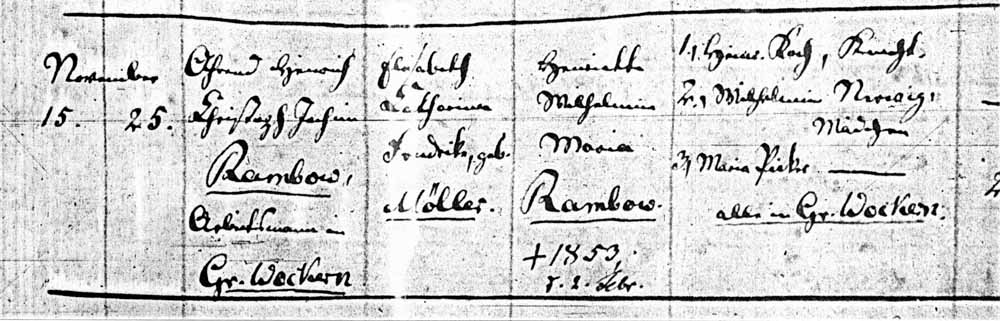 November
15. 25.
Ahrend Hinrich
Christoph Jochim
Rambow,
Arbeitsmann in
Gr. Wockern
Elisabeth
Catharina
Friedrike, geb.
Möller.
Henriette
Wilhelmine
Maria
Rambow.
† 1853,
d. 2. Febr.
1, Hinr. Koch, Knecht.
2, Wilhelmine
Mädchen
3, Maria Picker ———
alle in Gr. Wockern.